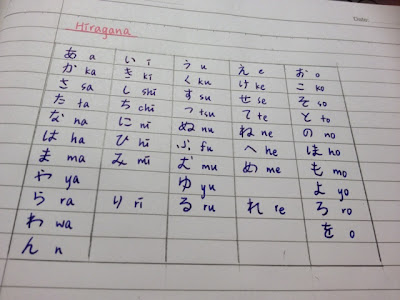 Date:
Hiragana
あ a い i う u え e お o
か ka き ki く ku け ke こ ko
さ sa し shi す su せ se そ so
た ta ち chi つ tsu て te と to
な na に ni ぬ nu ね ne の no
は ha ひ hi ふ fu へ he ほ ho
ま ma み mi む mu め me も mo
や ya ゆ yu よ yo
ら ra り ri る ru れ re ろ ro
わ wa を o
ん n